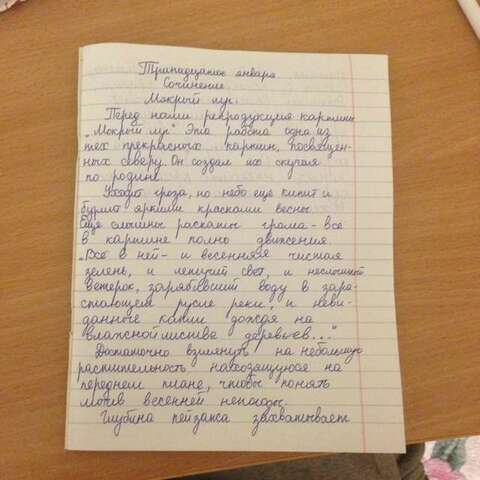 Тринадцатое января
Сочинение
Мокрый луг.
Перед нами репродукция картины
„Мокрый луг" Эта работа одна из
тех прекрасных картин, посвящен-
ных северу. Он создал их скучая
по родине.
Уходит гроза, но небо еще кипит и
бурлит яркими красками весны
Еще слышны раскаты грома - все
в картине полно движения.
„Все в ней - и весенняя чистая
зелень, и летучий свет, и неслышный
ветерок, зарябивший воду в зара-
стающем русле реки, и неви-
данные капли дождя на
влажной листве деревьев..."
Достаточно взглянуть на небольшую
растительность находящуюся на
переднем плане, чтобы понять
мотив весенней непогоды.
Глубина пейзажа захватывает